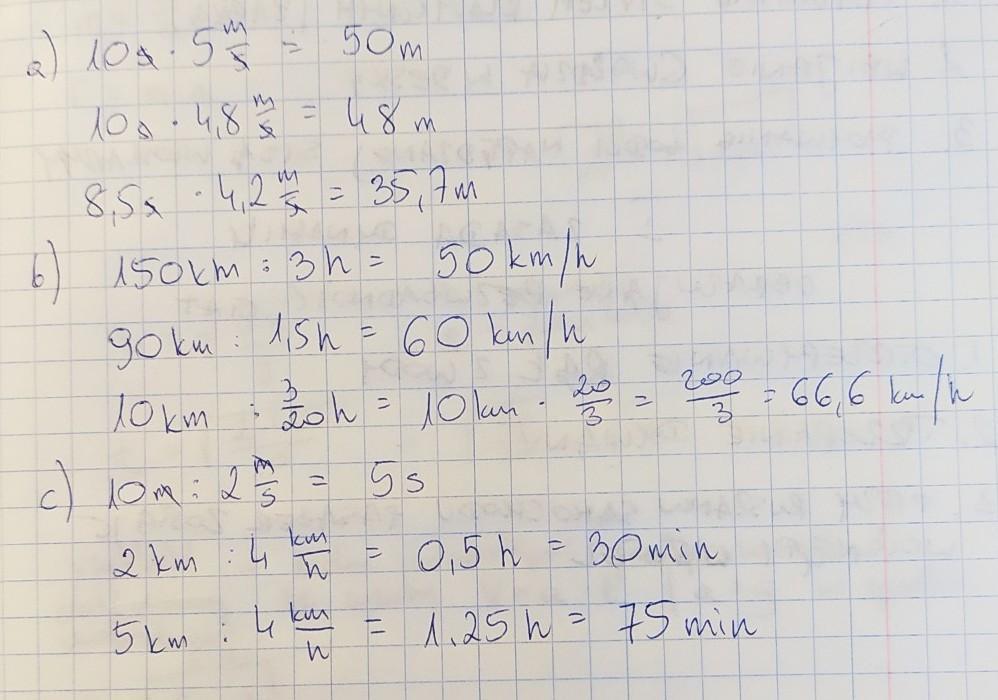 a) 10s · 5 m/s = 50m
10s · 4,8 m/s = 48m
8,5s · 4,2 m/s = 35,7m
b) 150km : 3h = 50 km/h
90km : 1,5h = 60 km/h
10km : 3/20 h = 10km · 20/3 = 200/3 = 66,6 km/h
c) 10m : 2 m/s = 5s
2km : 4 km/h = 0,5h = 30min
5km : 4 km/h = 1.25h = 75min